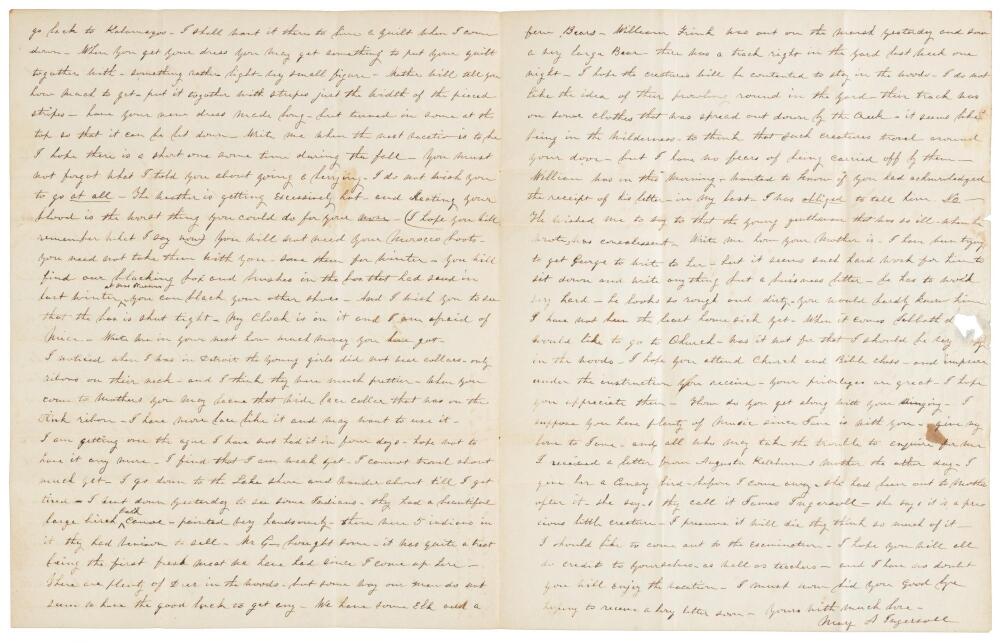 go back to Kalamazoo - I shall want it there to line a quilt when I come
down - When you get your dress you may get something to put your quilt
together with - something rather light - very small figure - Mother will tell you
how much to get - put it together with stripes just the width of the pieced
stripes - have your new dress made long - but turned in some at the
top so that it can be let down - Write me when the next vacation is to be
I hope there is a short one some time during the fall - You must
not forget what I told you about going a berrying - I do not wish you
to go at all - The weather is getting excessively hot - and Heating your
blood is the worst thing you could do for your (I hope you will
remember what I say now) You will not need your Morocco boots -
you need not take them with you - save them for winter - You will
find our blacking box and brushes in the box that had sand in
last winter at our rooms you can black your other shoes - And I wish you to see
that the box is shut tight - My Cloak is in it and I am afraid of
Mice - Write me in your next how much money you have got -
I noticed when I was in Detroit the young girls did not wear collars - only
ribons on their neck - and I think they were much prettier - When you
come to Mothers you may leave that wide lace collar that was on the
Pink ribon - I have more lace like it and may want to use it -
I am getting over the ague I have not had it in four days - hope not to
have it any more - I find that I am weak yet - I cannot travel about
much yet - I go down to the Lake shore and wander about till I get
tired - I went down yesterday to see some Indians - they had a beautiful
large birch bark Canoe - painted very handsomely - there were 5 indians in
it they had venison to sell - Mr G- bought some - it was quite a treat
being the first fresh meat we have had since I came up here -
There are plenty of Deer in the woods - but some way our men do not
seem to have the good luck to get any - We have some Elk and a
few Bears - William Frink was out on the marsh yesterday and saw
a very large Bear - there was a track right in the yard last week one
night - I hope the creatures will be contented to stay in the woods - I do not
like the idea of their prowling round in the yard - their track was
on some clothes that was spread out down by the Creek - it seems like
being in the wilderness - to think that such creatures travel around
your door - but I have no fears of being carried off by them -
William was in this morning - wanted to know if you had acknowledged
the receipt of his letter - in my last - I was obliged to tell him No -
He wished me to say to that the young gentleman that was so ill - when he
wrote, was convalescent - Write me how your Mother is - I have been trying
to get George to write to her - but it seems such hard work for him to
sit down and write anything but a buisness letter - he has to work
very hard - he looks so rough and dirty - you would hardly know him
I have not been the least home sick yet - When it comes Sabbath
would like to go to Church - was it not for that I should be very
in the woods - I hope you attend Church and Bible class - and improve
under the instruction you receive - Your privileges are great - I hope
you appreciate them - How do you get along with your singing - I
suppose you have plenty of Music since Jane is with you - give my
love to Jane - and all who may take the trouble to enquire for me
I received a letter from Augusta Ketchum's mother the other day - I
gave her a Canary bird - before I came away - she had been out to Mothers
after it - she says they call it James Ingersoll - she says it is a pre
cious little creature - I presume it will die they think so much of it -
I should like to come out to the examination - I hope you will all
do credit to yourselves - as well as teachers - and I have no doubt
you will enjoy the vacation - I must now bid you Good bye
hoping to receive a long letter soon - Yours with much love -
Mary A Ingersoll